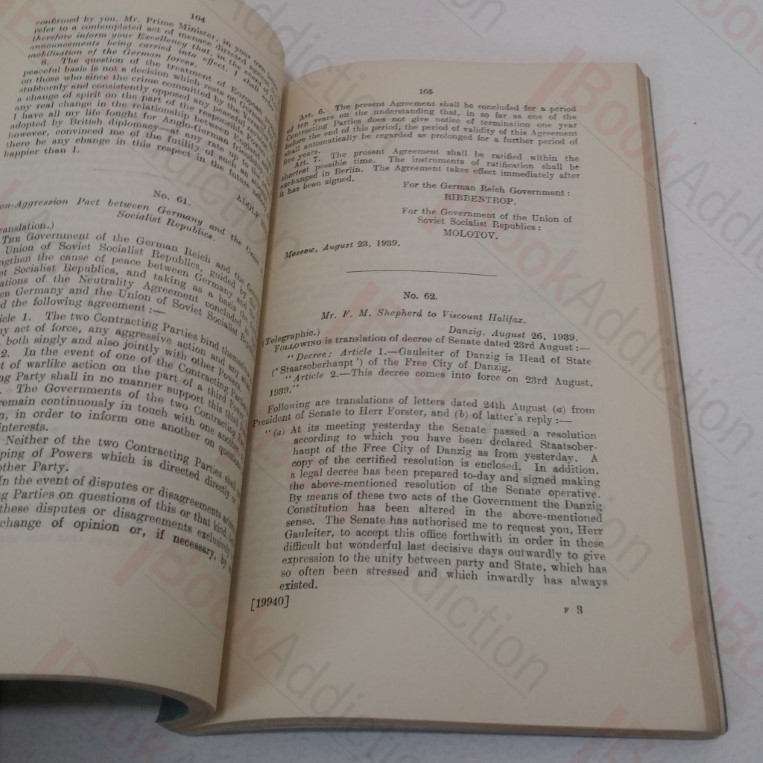 104
confirmed by you, Mr. Prime Minister, in your own
refer to a contemplated act of menace directed against
therefore inform your Excellency that, in the event of
announcements being carried into effect, I shall
mobilisation of the German forces.
8. The question of the treatment of European
peaceful basis is not a decision which rests on Germany
on those who since the crime committed by the Versailles
stubbornly and consistently opposed any peaceful
a change of spirit on the part of the responsible Powers
any real change in the relationship between England
I have all my life fought for Anglo-German friendship
adopted by British diplomacy—at any rate up to the
however, convinced me of the futility of such an
there be any change in this respect in the future
happier than I.
ADOLF
No. 61.
on-Aggression Pact between Germany and the Union
Socialist Republics.
anslation.)
THE Government of the German Reich and the
Union of Soviet Socialist Republics, guided by the
engthen the cause of peace between Germany and
et Socialist Republics, and taking as a basis the
ations of the Neutrality Agreement concluded
en Germany and the Union of Soviet Socialist
d the following agreement :—
icle 1. The two Contracting Parties bind themselves
y act of force, any aggressive action and any
, both singly and also jointly with other Powers.
2. In the event of one of the Contracting Parties
t of warlike action on the part of a third Power,
ng Party shall in no manner support this third
. The Governments of the two Contracting Parties
remain continuously in touch with one another
n, in order to inform one another on questions
interests.
Neither of the two Contracting Parties shall
ping of Powers which is directed directly or
other Party.
In the event of disputes or disagreements arising
ng Parties on questions of this or that kind,
these disputes or disagreements exclusively
change of opinion or, if necessary, by
105
Art. 6. The present Agreement shall be concluded for a period
of ten years on the understanding that, in so far as one of the
Contracting Parties does not give notice of termination one year
before the end of this period, the period of validity of this Agreement
shall automatically be regarded as prolonged for a further period of
five years.
Art. 7. The present Agreement shall be ratified within the
shortest possible time. The instruments of ratification shall be
exchanged in Berlin. The Agreement takes effect immediately after
it has been signed.
For the German Reich Government :
RIBBENTROP.
For the Government of the Union of
Soviet Socialist Republics :
MOLOTOV.
Moscow, August 23, 1939.
No. 62.
Mr. F. M. Shepherd to Viscount Halifax.
(Telegraphic.) Danzig, August 26, 1939.
FOLLOWING is translation of decree of Senate dated 23rd August :—
"Decree: Article 1.—Gauleiter of Danzig is Head of State
('Staatsoberhaupt') of the Free City of Danzig.
"Article 2.—This decree comes into force on 23rd August,
1939."
Following are translations of letters dated 24th August (a) from
President of Senate to Herr Forster, and (b) of latter's reply :—
"(a) At its meeting yesterday the Senate passed a resolution
according to which you have been declared Staatsober-
haupt of the Free City of Danzig as from yesterday. A
copy of the certified resolution is enclosed. In addition,
a legal decree has been prepared to-day and signed making
the above-mentioned resolution of the Senate operative.
By means of these two acts of the Government the Danzig
Constitution has been altered in the above-mentioned
sense. The Senate has authorised me to request you, Herr
Gauleiter, to accept this office forthwith in order in these
difficult but wonderful last decisive days outwardly to give
expression to the unity between party and State, which has
so often been stressed and which inwardly has always
existed.
[19940] F 3
BookAddiction